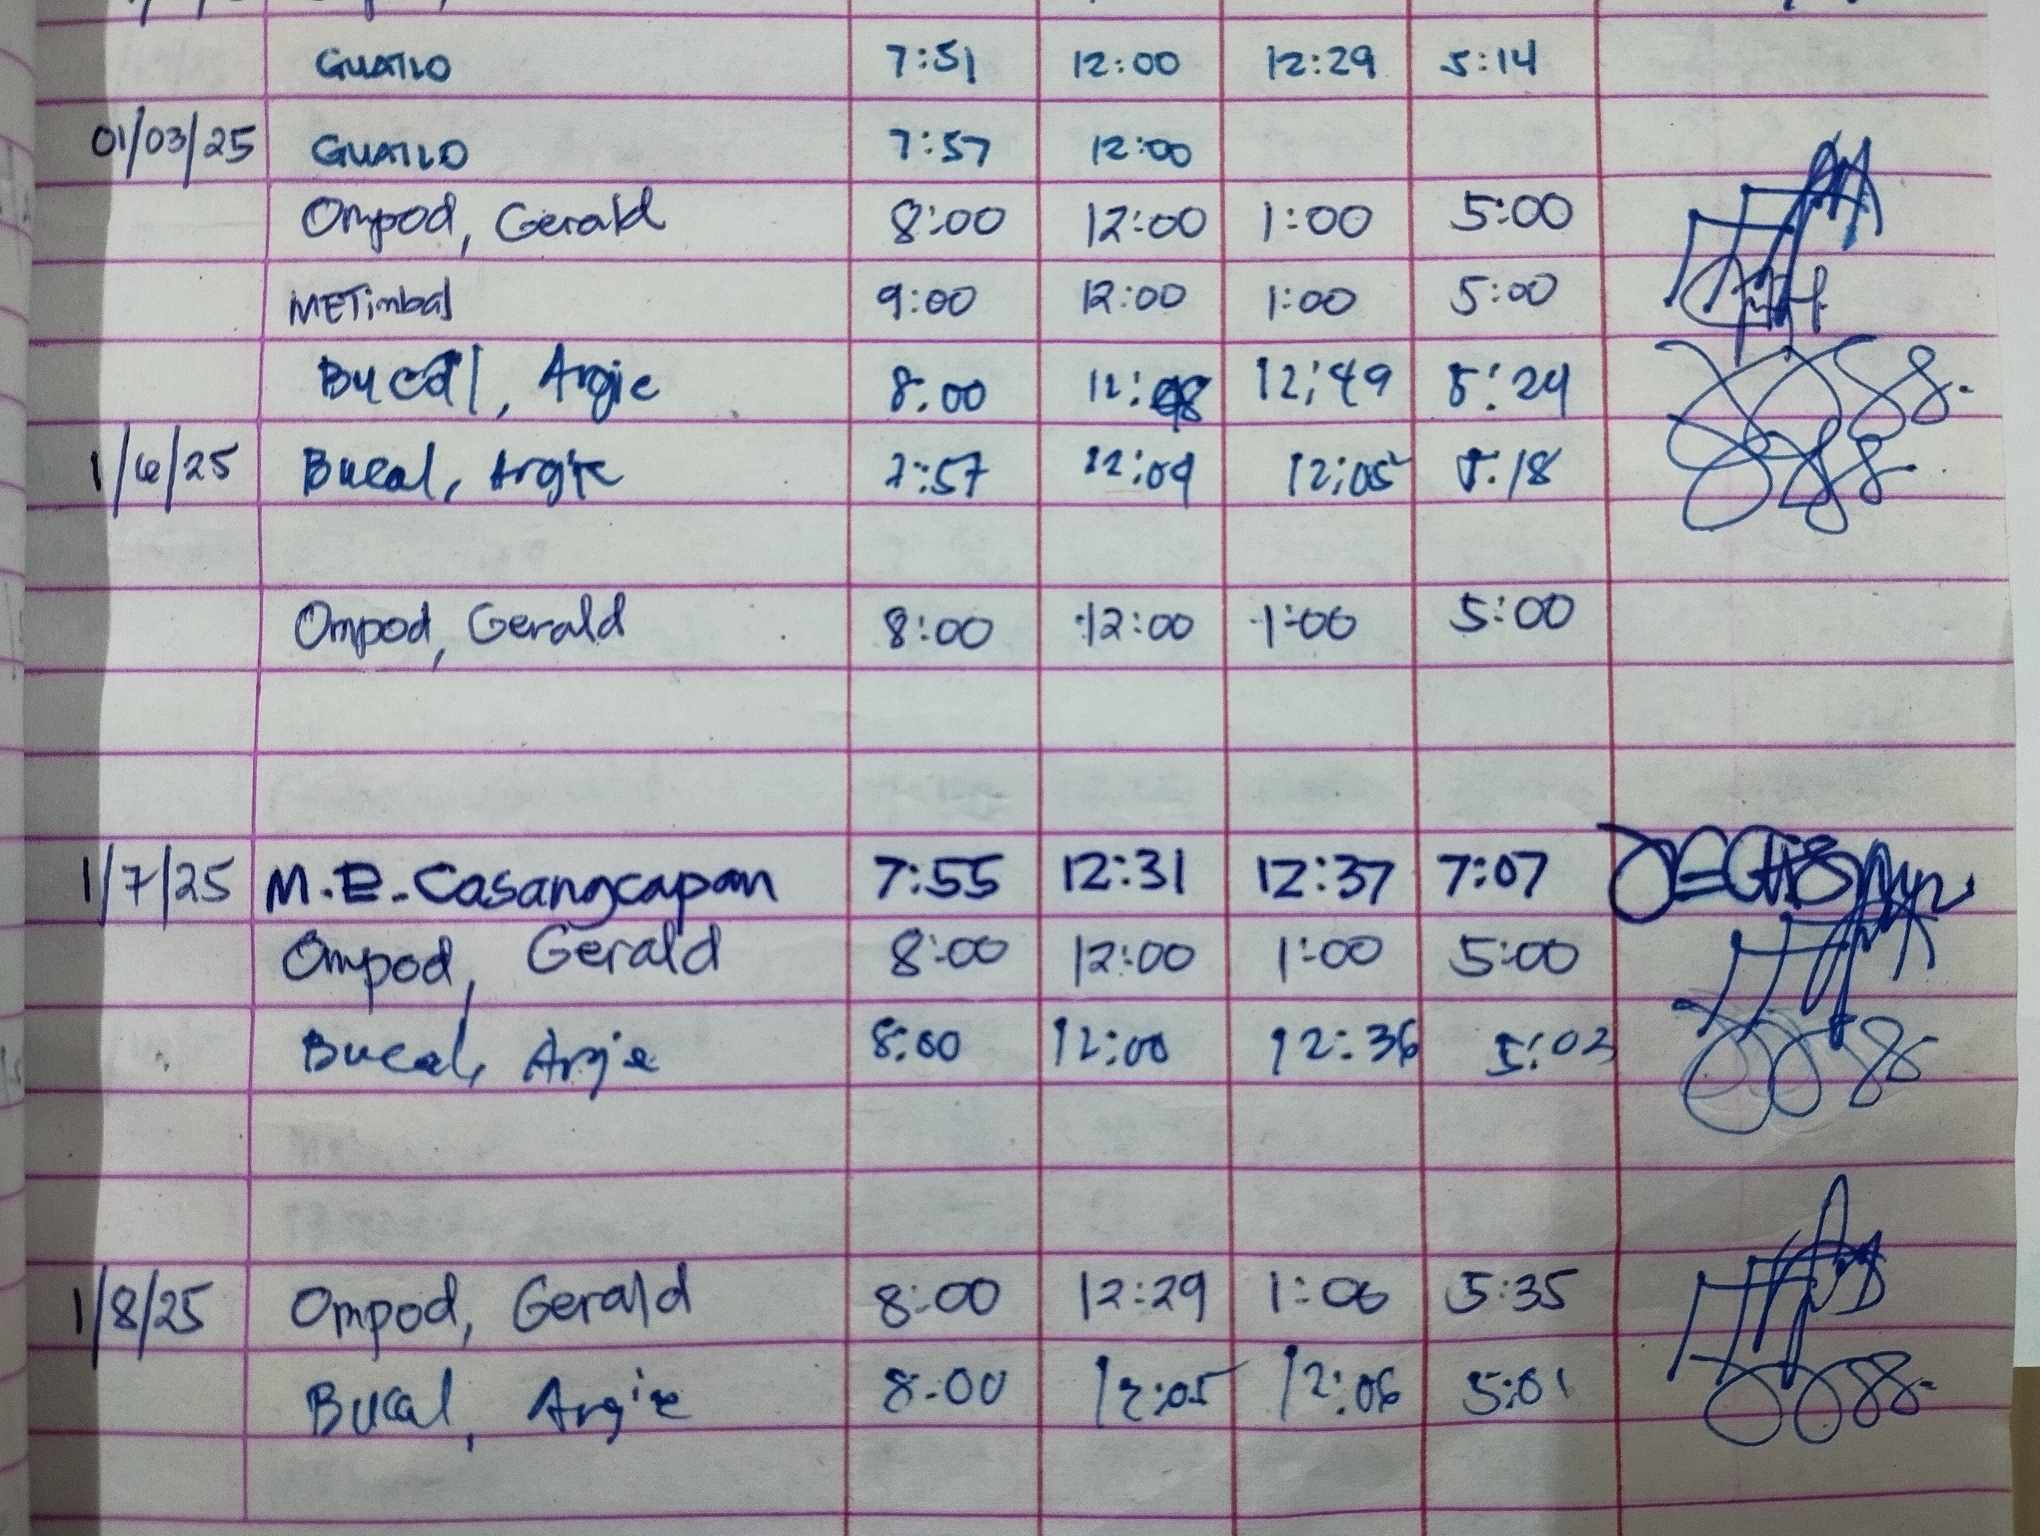 GUATLO 7:51 12:00 12:29 5:14
01/03/25 GUATLO 7:57 12:00
Ompod, Gerald 8:00 12:00 1:00 5:00
METimbal 9:00 12:00 1:00 5:00
Bucal, Argie 8:00 12:08 12:49 5:24
1/6/25 Bucal, Argie 7:57 12:04 12:05 5:18
Ompod, Gerald 8:00 12:00 1:00 5:00
1/7/25 M.E. Casangcapan 7:55 12:31 12:37 7:07
Ompod, Gerald 8:00 12:00 1:00 5:00
Bucal, Argie 8:00 12:00 12:36 5:03
1/8/25 Ompod, Gerald 8:00 12:29 1:06 5:35
Bucal, Argie 8:00 12:05 12:06 5:01